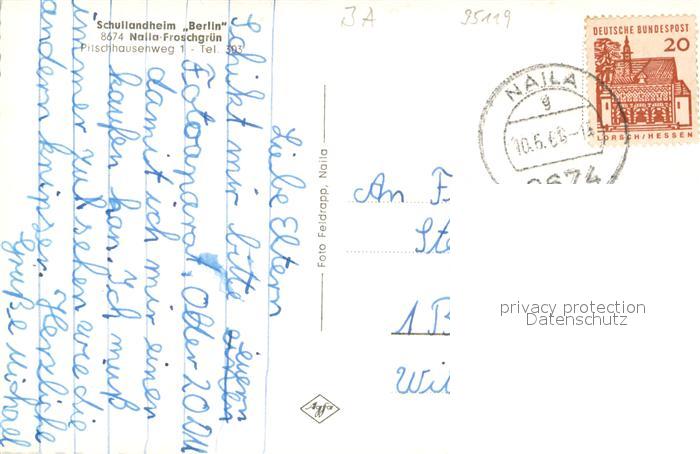 Schullandheim „Berlin"
8674 Naila-Froschgrün
Pitschhausenweg 1 - Tel. 303
Liebe Eltern
Schikt mir bitte euern
Fotoaparat, Oder 20 DM
damit ich mir einen
kaufen kan. Ich muß
immer zul sehen wie die
andern knipsen. Herzliche
Grüße Michael
Foto Feldrapp, Naila
Agfa
JA
95119
DEUTSCHE BUNDESPOST
20
LORSCH/HESSEN
NAILA
g
10.6.66
8674
An F
Ste
1 B
Wil
privacy protection
Datenschutz